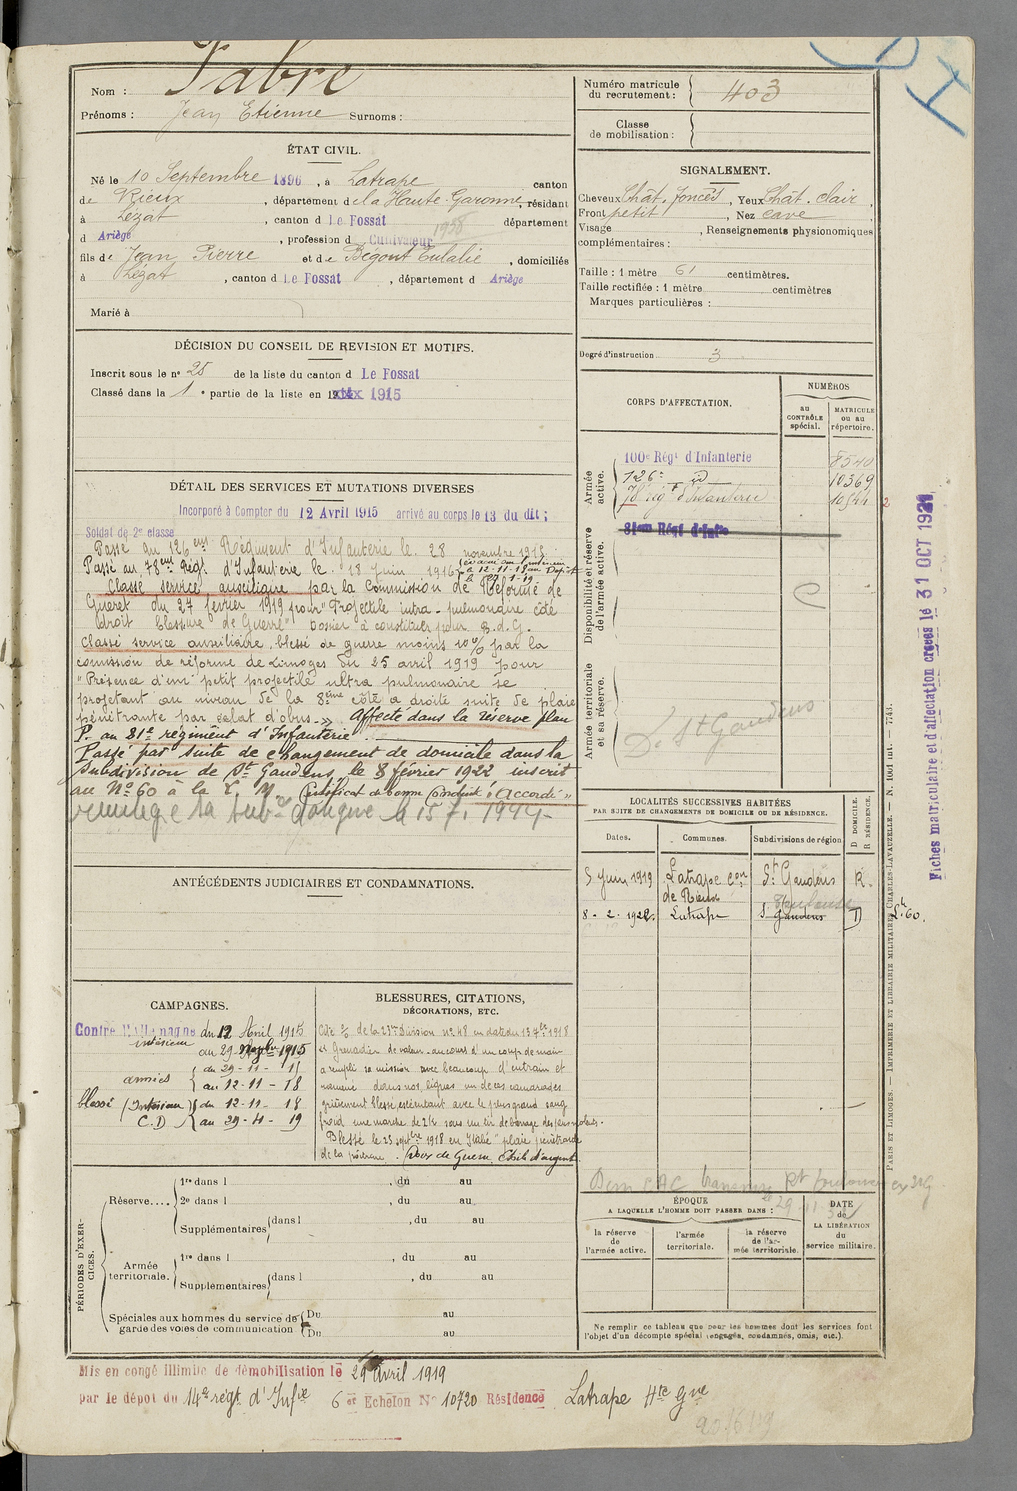 Nom : Fabre
Prénoms : Jean Etienne Surnoms :
ÉTAT CIVIL.
Né le 10 Septembre 1896, à Latrape canton
de Rieux, département de la Haute-Garonne, résidant
à Lézat, canton d Le Fossat département
d Ariège, profession d Cultivateur 1938
fils de Jean Pierre et de Bégout Eulalie, domiciliés
à Lézat, canton d Le Fossat, département d Ariège
Marié à
DÉCISION DU CONSEIL DE REVISION ET MOTIFS.
Inscrit sous le n° 25 de la liste du canton d Le Fossat
Classé dans la 1e partie de la liste en 1915
DÉTAIL DES SERVICES ET MUTATIONS DIVERSES
Incorporé à Compter du 12 Avril 1915 arrivé au corps le 13 du dit ;
Soldat de 2e classe
Passé au 126ème Régiment d'Infanterie le 28 novembre 1915.
Passé au 78ème Régt. d'Infanterie le 18 juin 1916
Classé service auxiliaire par la Commission de Réforme de
Guéret du 27 février 1919 pour "Projectile intra-pulmonaire côté
droit blessure de Guerre" Dossier à constituer pour B.d.G.
Classé service auxiliaire, blessé de guerre moins 10% par la
comission de réforme de Limoges du 25 avril 1919 pour
"Présence d'un petit projectile ultra pulmonaire se
projetant au niveau de la 8ème côte a droite suite de plaie
pénétrante par éclat d'obus-" Affecté dans la réserve plan
P. au 81e régiment d'Infanterie.
Passé par suite de changement de domicile dans la
subdivision de St Gaudens, le 8 février 1922 inscrit
au N° 60 à la C. M. Certificat de bonne Conduite "Accordé"
le 15.7.1944-
ANTÉCÉDENTS JUDICIAIRES ET CONDAMNATIONS.
CAMPAGNES.
Contre l'Allemagne du 12 Avril 1915
intérieur au 29-
armées du 29-11-15
au 12-11-18
blessé (Intérieur) du 12-11-18
C.D au 29-4-19
BLESSURES, CITATIONS,
DÉCORATIONS, ETC.
de la 23me Division n° 48 en date du
Grenadier de valeur - au cours d'un coup de main
a rempli sa mission avec beaucoup d'entrain et
ramené dans nos lignes un de ces camarades
grièvement blessé, exécutant avec le plus grand sang
froid une marche de
Blessé le 23 septbre 1918 en Italie "plaie pénétrante
de la poitrine. Croix de Guerre Étoile d'argent
PÉRIODES D'EXERCICES.
Réserve....
1re dans l , du au
2e dans l , du au
Supplémentaires dans l , du au
Armée territoriale.
1re dans l , du au
Supplémentaires dans l , du au
Spéciales aux hommes du service de garde des voies de communication
Du au
Du au
Mis en congé illimité de démobilisation le 29 Avril 1919
par le dépot du 14e régt d'Infie 6 et Echelon N° 10720 Résidence Latrape Hte Gne
Numéro matricule du recrutement : 403
Classe de mobilisation :
SIGNALEMENT.
Cheveux Chât. foncés, Yeux Chât. clair,
Front petit, Nez cave
Visage , Renseignements physionomiques
complémentaires :
Taille : 1 mètre 61 centimètres.
Taille rectifiée : 1 mètre centimètres
Marques particulières :
Degré d'instruction. 3
CORPS D'AFFECTATION.
NUMÉROS
au CONTRÔLE spécial.
MATRICULE ou au répertoire.
Armée active.
100e Régt d'Infanterie 8540
126e d° 10369
78e rég d'Infanterie 10544
Disponibilité et réserve de l'armée active.
81eme Régt d'Infie
Armée territoriale et sa réserve.
D. St Gaudens
LOCALITÉS SUCCESSIVES HABITÉES
PAR SUITE DE CHANGEMENTS DE DOMICILE OU DE RÉSIDENCE.
Dates. Communes. Subdivisions de région
D DOMICILE. R RÉSIDENCE.
5 Juin 1919 Latrape con de Rieux St Gaudens R.
8-2-1922. Latrape St Gaudens D
Toulouse
ÉPOQUE
A LAQUELLE L'HOMME DOIT PASSER DANS :
la réserve de l'armée active.
l'armée territoriale.
la réserve de l'armée territoriale.
DATE de LA LIBÉRATION du service militaire.
Ne remplir ce tableau que pour les hommes dont les services font
l'objet d'un décompte spécial (engagés, condamnés, omis, etc.).
Fiches matriculaire et d'affectation créées le 31 OCT 1921
PARIS ET LIMOGES. — IMPRIMERIE ET LIBRAIRIE MILITAIRES CHARLES-LAVAUZELLE. — N. 1001 int. — 7743.